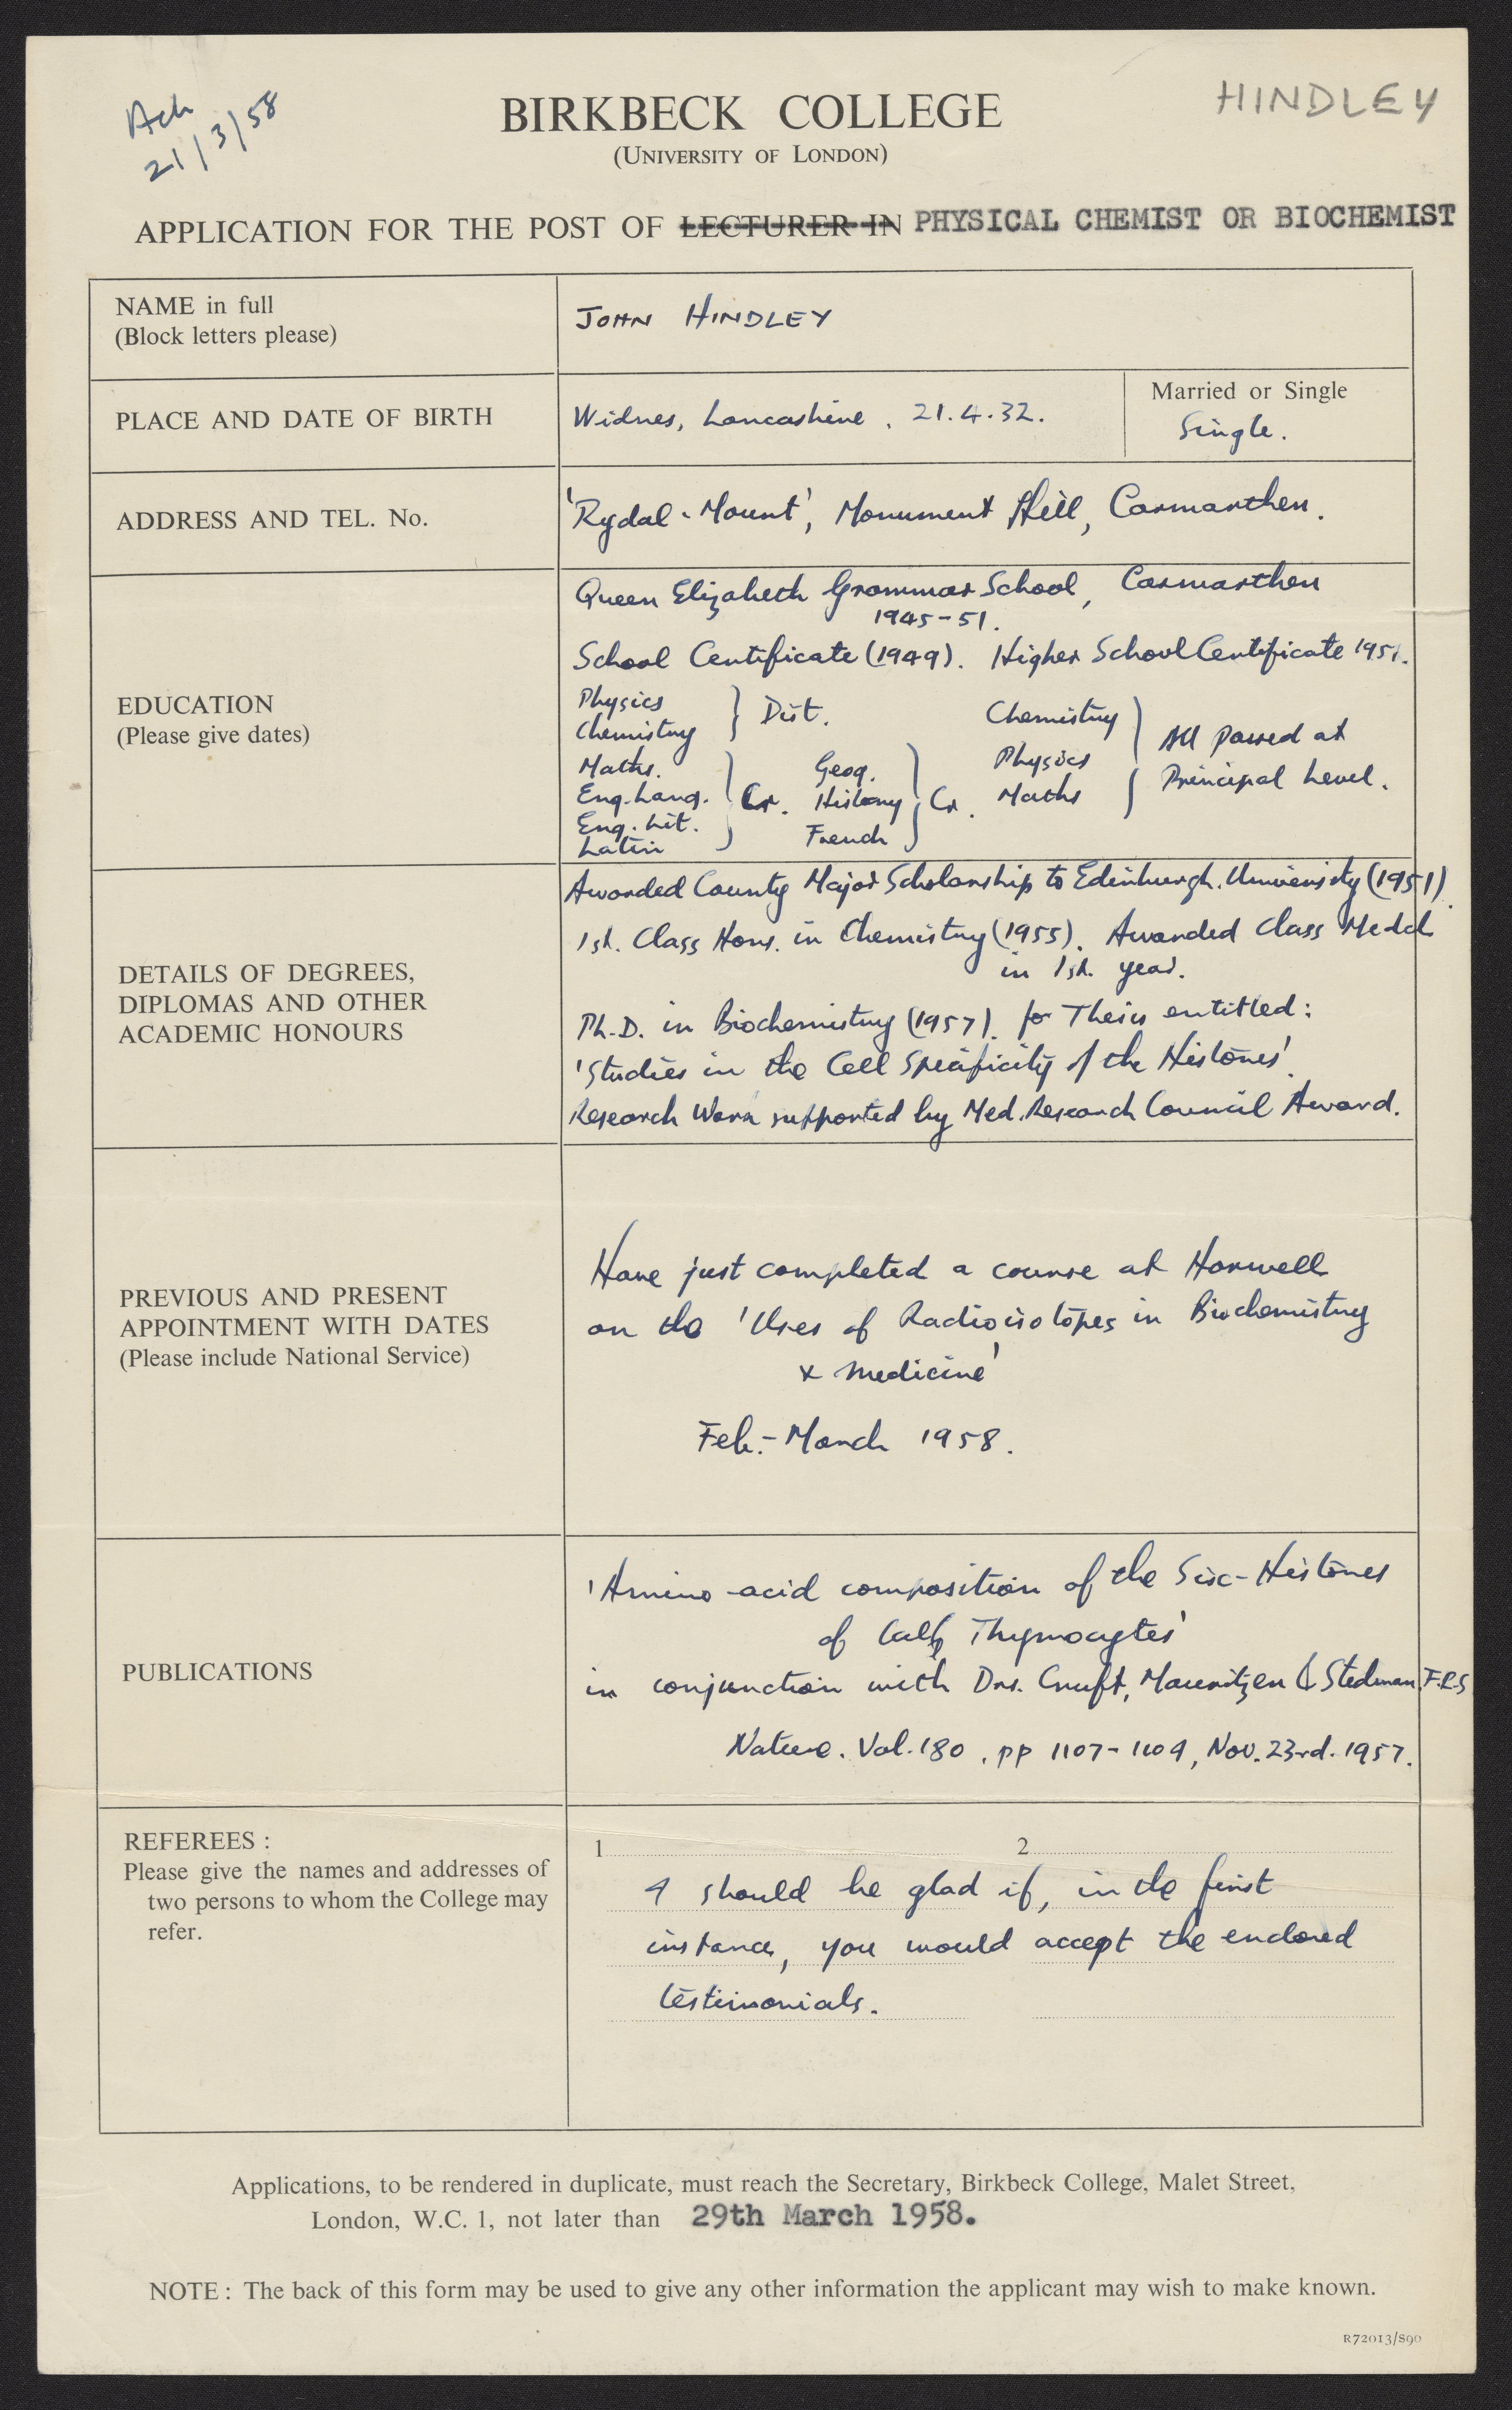 Ack
21/3/58
HINDLEY
BIRKBECK COLLEGE
(UNIVERSITY OF LONDON)
APPLICATION FOR THE POST OF LECTURER IN PHYSICAL CHEMIST OR BIOCHEMIST
NAME in full
(Block letters please)
JOHN HINDLEY
PLACE AND DATE OF BIRTH
Widnes, Lancashire. 21.4.32.
Married or Single
Single.
ADDRESS AND TEL. No.
'Rydal-Mount', Monument Hill, Carmarthen.
EDUCATION
(Please give dates)
Queen Elizabeth Grammar School, Carmarthen
1945-51.
School Certificate (1949). Higher School Certificate 1951.
Physics
Chemistry
} Dist.
Maths.
Eng. Lang.
Eng. Lit.
Latin
} Cr.
Geog.
History
French
} Cr.
Chemistry
Physics
Maths
} All passed at
Principal Level.
DETAILS OF DEGREES,
DIPLOMAS AND OTHER
ACADEMIC HONOURS
Awarded County Major Scholarship to Edinburgh. University (1951).
1st. Class Hons. in Chemistry (1955). Awarded Class Medal
in 1st. year.
Ph.D. in Biochemistry (1957). for Thesis entitled:
'Studies in the Cell Specificity of the Histones'.
Research Work supported by Med. Research Council Award.
PREVIOUS AND PRESENT
APPOINTMENT WITH DATES
(Please include National Service)
Have just completed a course at Harwell
on the 'Uses of Radioisotopes in Biochemistry
& Medicine'
Feb.-March 1958.
PUBLICATIONS
'Amino-acid composition of the Six-Histones
of Calf Thymocytes'
in conjunction with Drs. Cruft, Mauritzen & Stedman F.R.S
Nature. Vol. 180, pp 1107-1109, Nov. 23rd. 1957.
REFEREES :
Please give the names and addresses of
two persons to whom the College may
refer.
1
2
I should be glad if, in the first
instance, you would accept the enclosed
testimonials.
Applications, to be rendered in duplicate, must reach the Secretary, Birkbeck College, Malet Street,
London, W.C. 1, not later than 29th March 1958.
NOTE : The back of this form may be used to give any other information the applicant may wish to make known.
R72013/S90